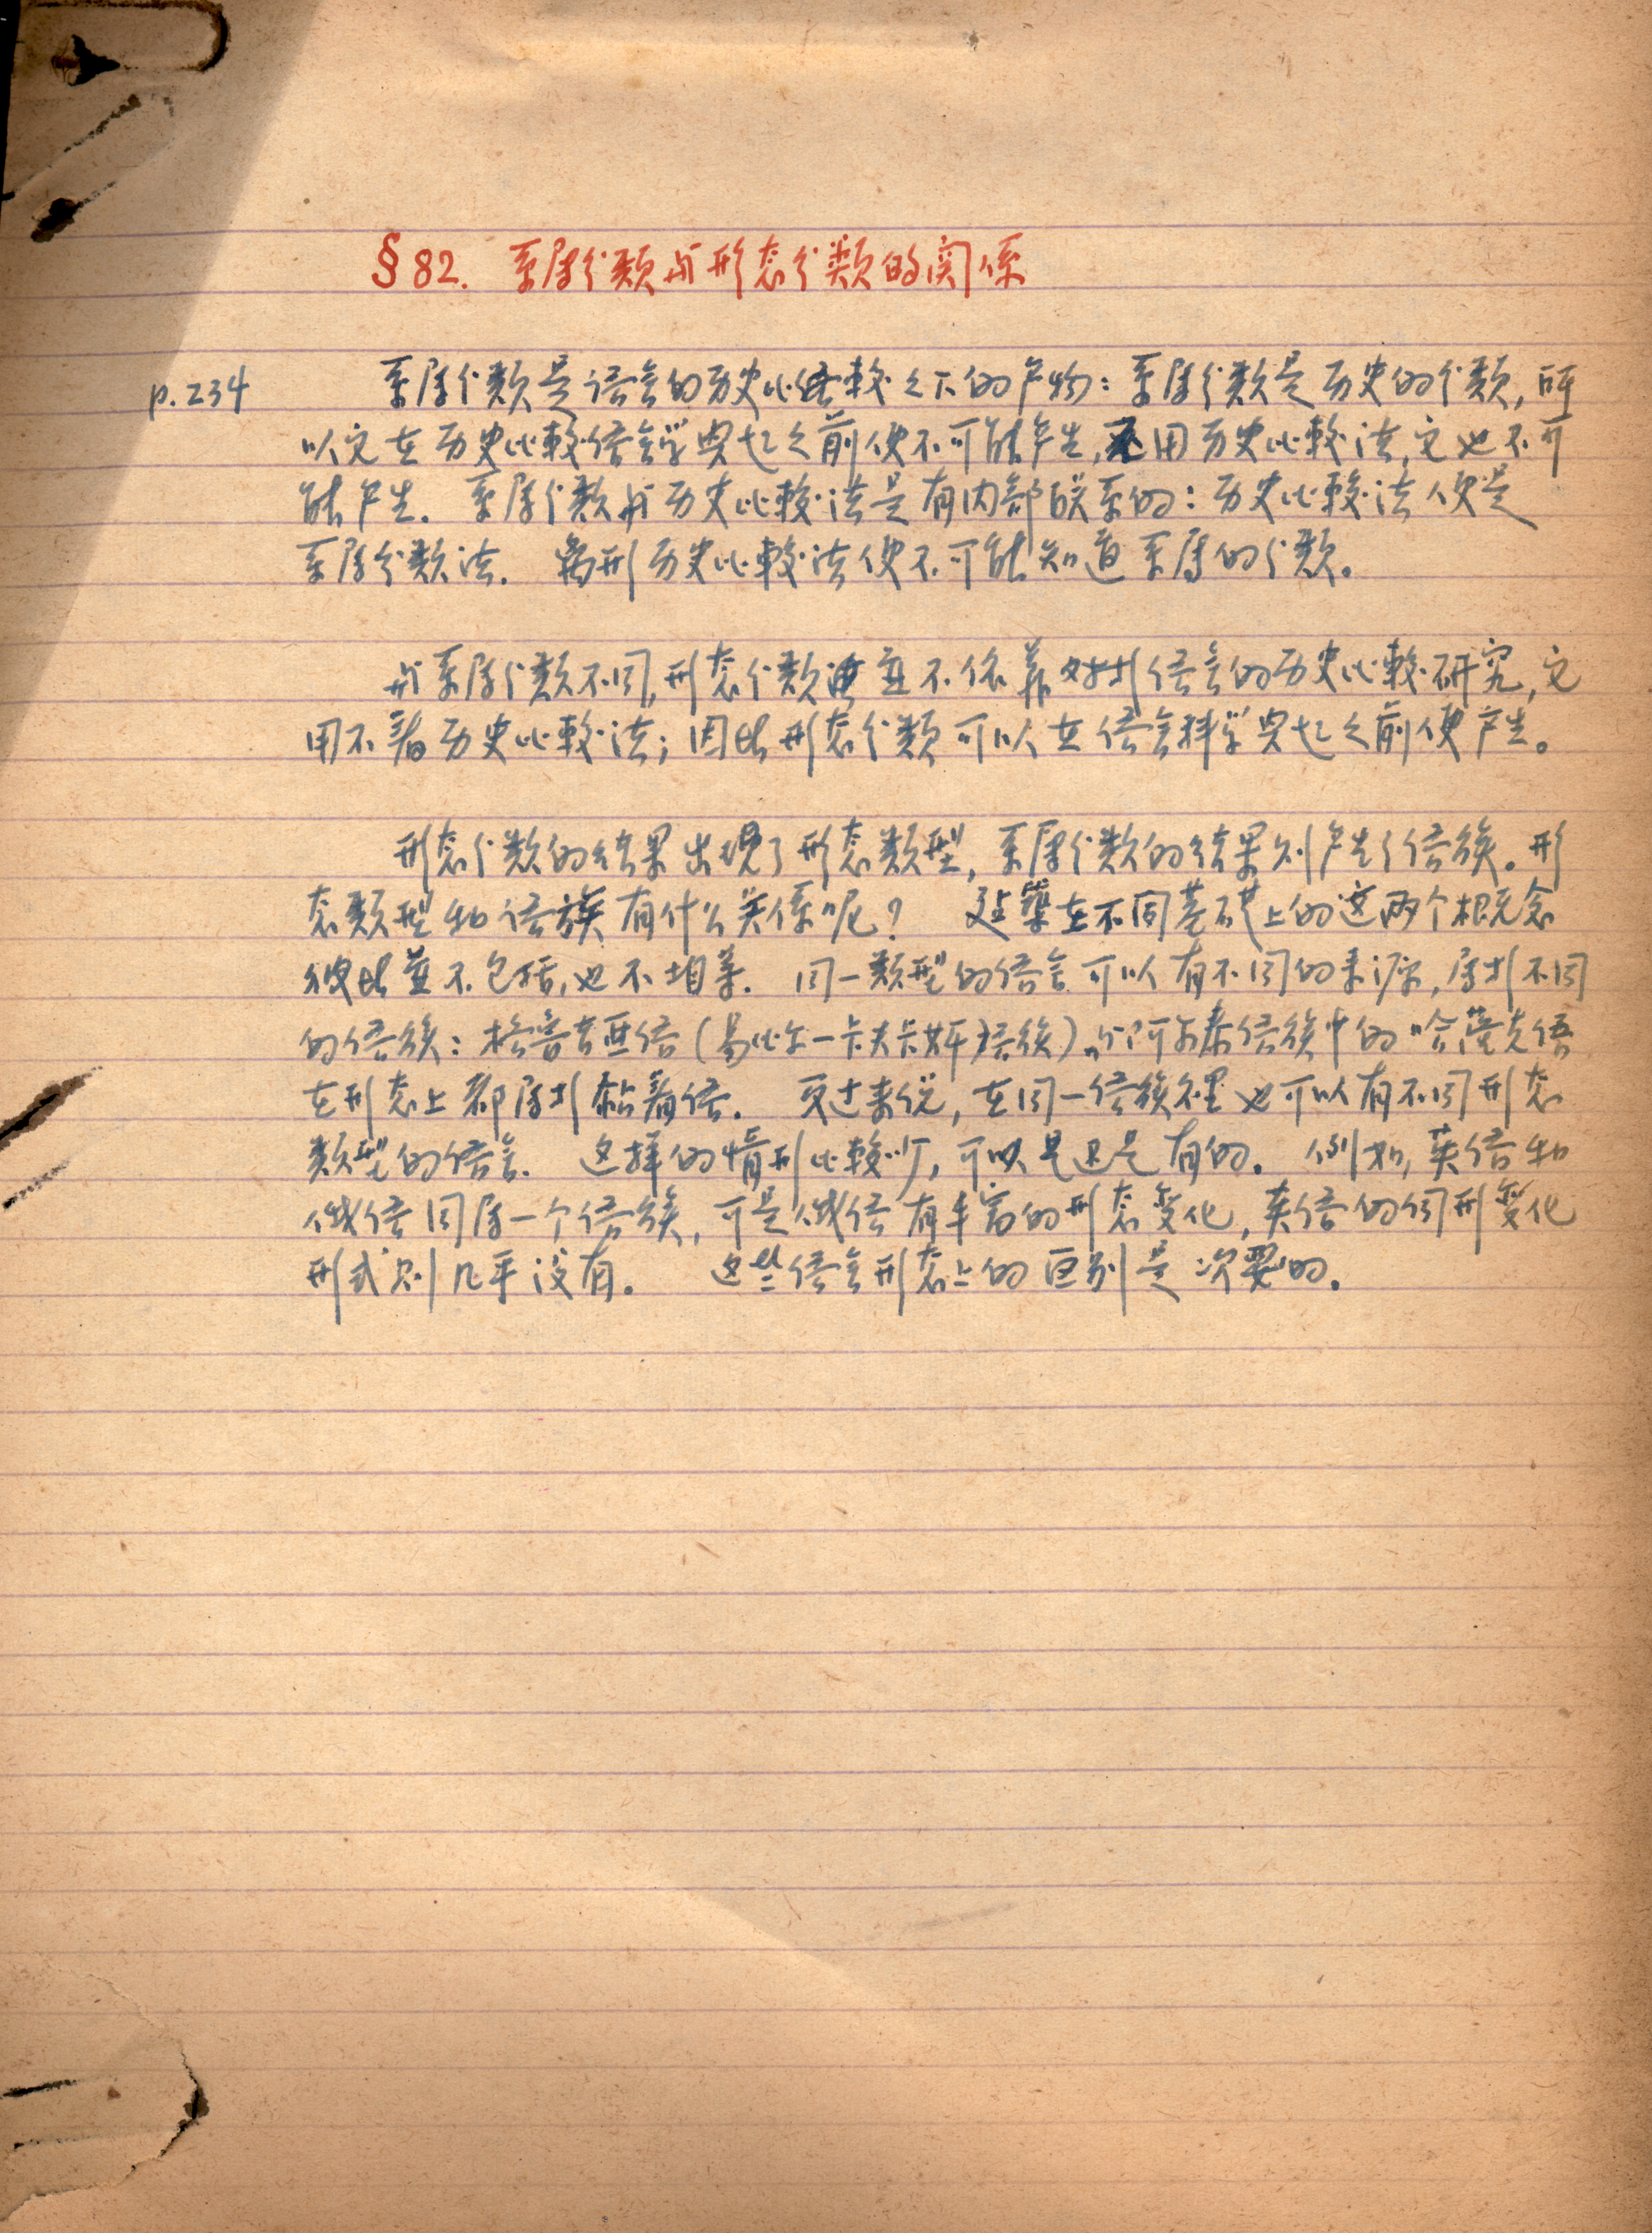 §82. 系属分类与形态分类的関係
p.234
系属分类是语言的历史比较之下的产物：系属分类是历史的分类，所
以它在历史比較语言学兴起之前便不可能产生，不用历史比較法，它也不可
能产生. 系属分类与历史比較法是有内部联系的：历史比較法便是
系属分类法. 离开历史比較法便不可能知道系属的分类。
与系属分类不同，形态分类並不依靠对于语言的历史比較研究，它
用不着历史比較法；因此形态分类可以在语言科学兴起之前便产生。
形态分类的结果出现了形态类型，系属分类的结果则产生了语族。形
态类型和语族有什么关係呢？ 建築在不同基礎上的这两个概念
彼此並不包括，也不相等. 同一类型的语言可以有不同的来源，属于不同
的语族：格鲁吉亚语（易比尔—卡夫卡斯语族）和阿尔泰语族中的哈薩克语
在形态上都属于黏着语. 反过来说，在同一语族里也可以有不同形态
类型的语言. 这样的情形比較少，可以是还是有的. 例如，英语和
俄语同属一个语族，可是俄语有丰富的形态变化，英语的词形变化
形式则几乎没有。 这些语言形态上的区别是次要的.